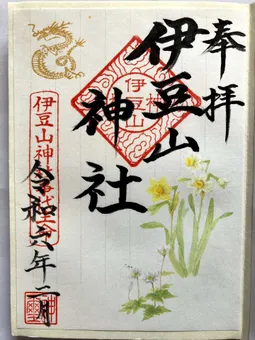 奉拝
伊豆山
神社
伊豆山
伊豆山神
令和六年二月